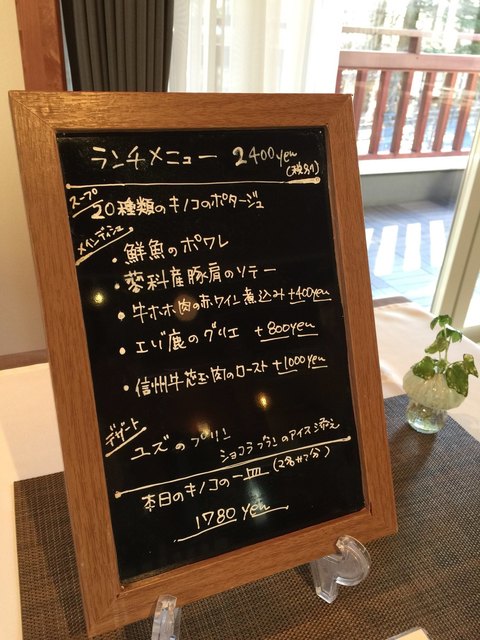 ランチメニュー 2400yen
(税別)
スープ
20種類のキノコのポタージュ
メインディッシュ
・鮮魚のポワレ
・蓼科産豚肩のソテー
・牛ホホ肉の赤ワイン煮込み +400yen
・エゾ鹿のグリエ +800yen
・信州牛芯玉肉のロースト +1000yen
デザート
ユズのプリン
ショコラブランのアイス添え
本日のキノコの一皿 (2名サマ分)
1780 yen